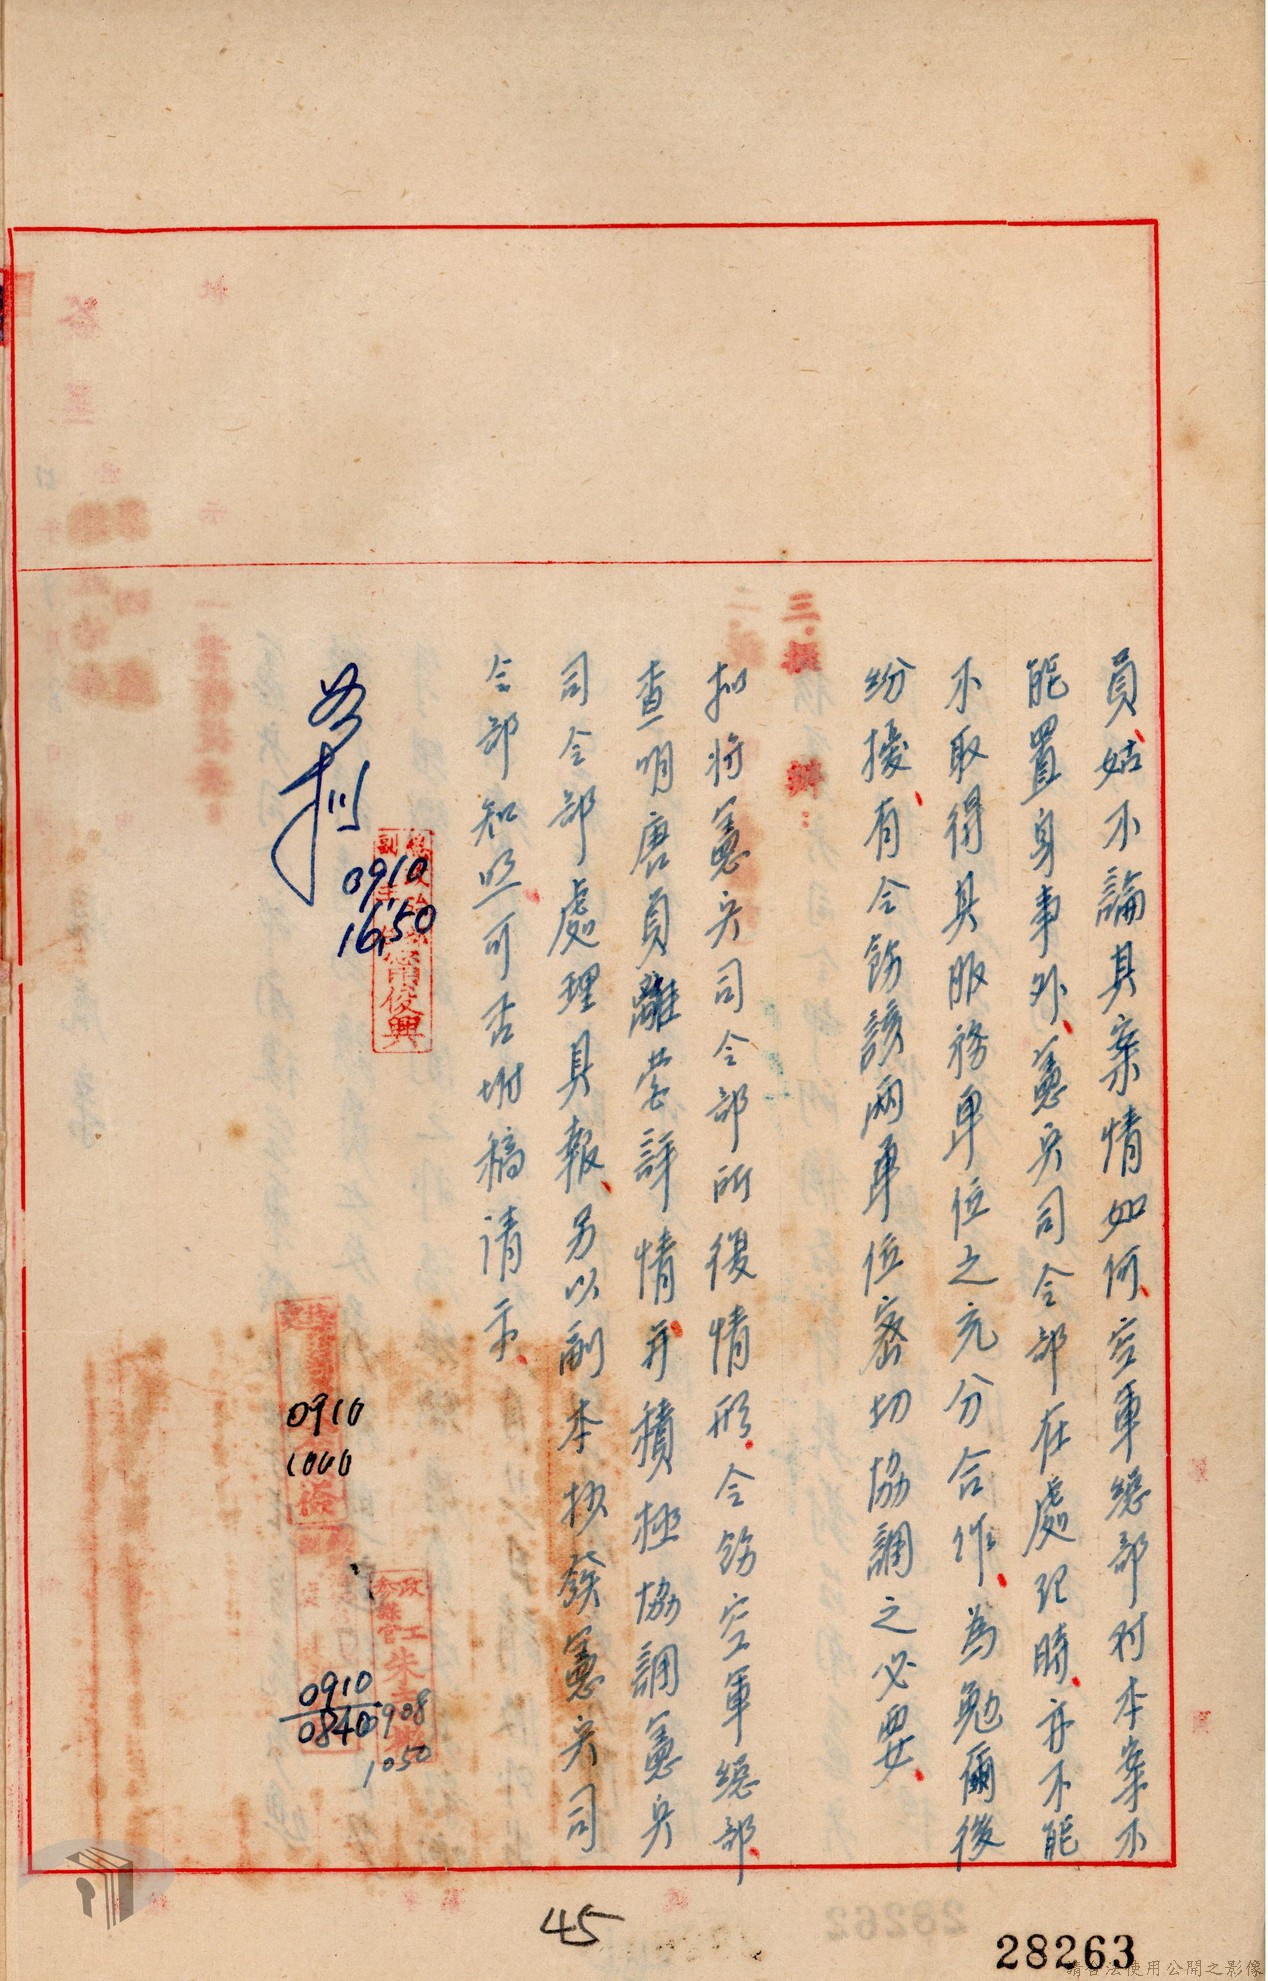 員、姑不論其案情如何、空軍總部对本案不
能置身事外、憲兵司令部在處理時、亦不能
不取得其服務单位之充分合作、為勉爾後
紛擾、有令飭該兩单位密切協調之必要、
三、擬辦：
擬將憲兵司令部所復情形、令飭空軍總部、
查明唐員離营詳情、并積極協調憲兵
司令部處理具報、另以副本抄發憲兵司
令部知照、可否、坿稿请示、
0910
16,50
甯俊興
0910
1000
政工
參謀官
朱
0908
1050
0910
0840
45
28263
請合法使用公開之影像